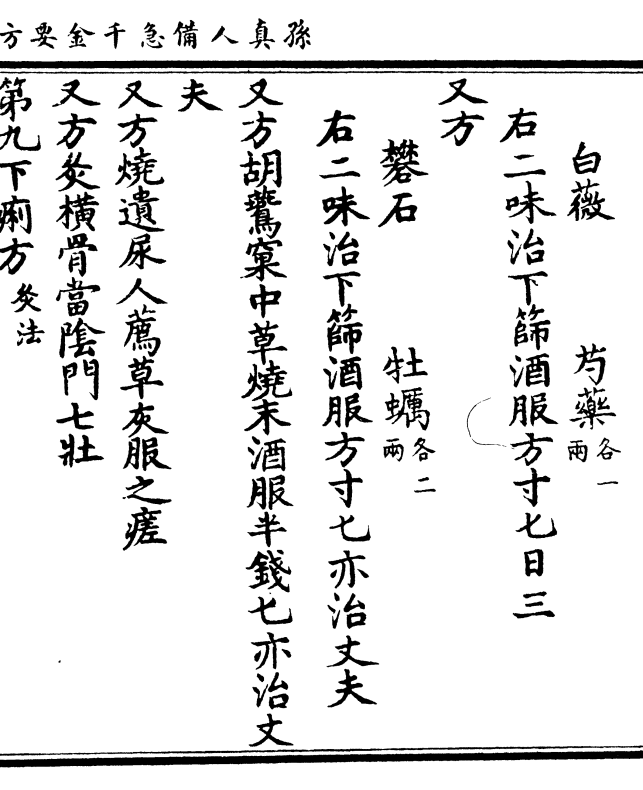 孫真人備急千金要方
白薇 芍藥各一兩
右二味治下篩酒服方寸匕日三
又方
礬石 牡蠣各二兩
右二味治下篩酒服方寸匕亦治丈夫
又方胡鷰窠中草燒末酒服半錢匕亦治丈
夫
又方燒遺尿人薦草灰服之瘥
又方灸橫骨當陰門七壯
第九下痢方灸法